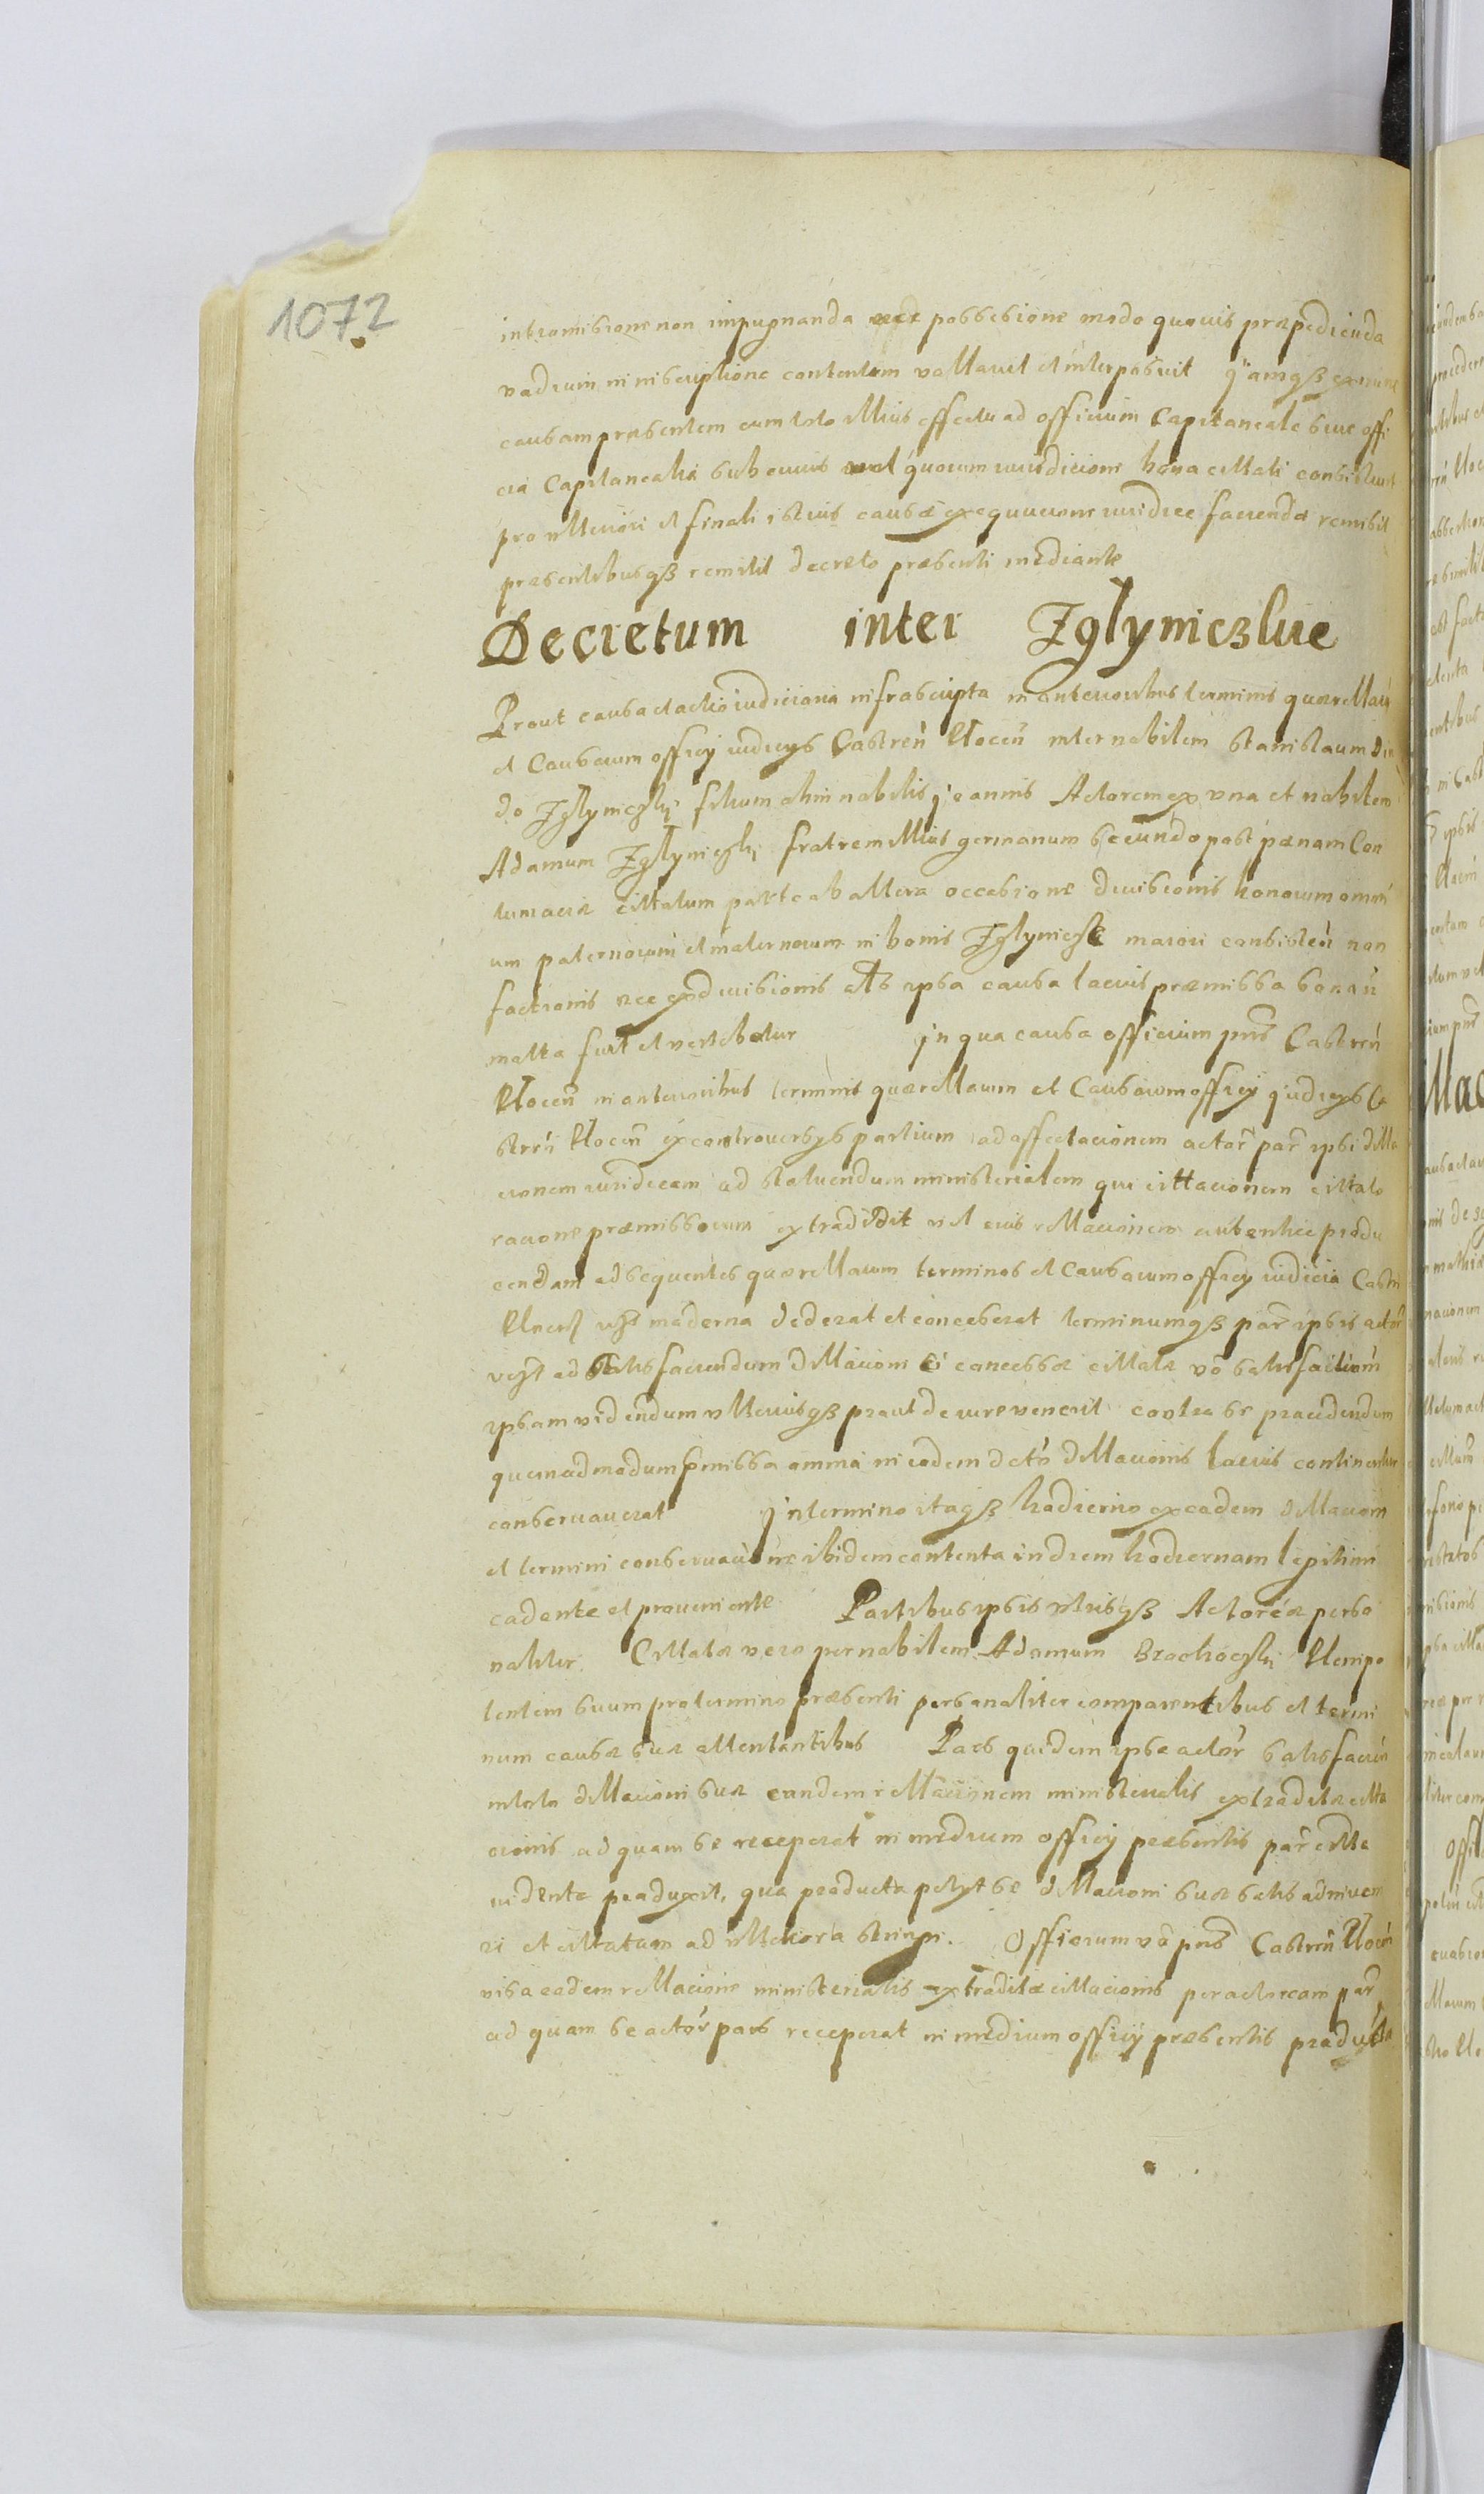 1072
intromisione non impugnanda nec possesione modo quovis præpedienda
vadium in inscriptione contentum vallavit et interposuit Jamqȝ ex nunc
causam præsentem cum toto illius effectu ad officium Capitaneale sive offi
cia Capitanealia sub cuius vel quorum iurisdicione bona cittati consistunt
pro ulteriori et finali istius causæ exequucione iuridice facienda remisit
præsentibusqȝ remitit decreto præsenti mediante
Decretum inter Zglyniczkie
Prout causa et actio iudiciaria infrascripta in anterioribus terminis quærellarũ
et Causarum officy iudicys Castreñ Plocen̄ inter nobilem Stanislaum
do Zglyniczki filium olim nobilis Joannis Actorem ex una et nobilem
Adamum Zglyniczki fratrem illius germanum secundo post pænam Con
tumaciæ cittatum parte ab altera occasione divisionis bonorum omni
um paternorum et maternorum in bonis Zglynicze maiori consisteñ non
factionis nec exdivisionis ets ipsa causa lacius præmissa sonañ
malta fuit et vertebatur Jn qua causa officium pñs Castreñ
Plocen̄ in anterioribus terminis quærellarum et Causarum officy Judicys Ca
streñ Plocen̄ ex controversys partium ad affectacionem actoȓ paȓ ipsi dilla
cionem iuridicam ad statuendum ministerialem qui cittacionem cittato
racione præmissorum extradidit vel eius rellacionem autentice produ
cendam ad sequentes quærellarum terminos et Causarum officy iudicia Castr
Plocen̄ moderna dederat et conceserat terminumqȝ paȓ ipsis actoȓ
ad satisfaciendum dillacioni ei concessæ cittatæ vo satisfacioni
ipsam videndum ulteriusqȝ prout de iure venerit contra se procedendum
quemadmodum pmissa omnia in eodem dcto dillacionis lacius continentur
conservaverat Jn termino itaqȝ hodierno ex eadem dillacioñ
et termini conservacione ibidem contenta in diem hodiernam legitime
cadente et proveniente Partibus ipsis utrisqȝ Actoreæ perso
naliter Cittatæ vero per nobilem Adamum Brochoczki Plenipo
tentem suum pro termino præsenti personaliter comparentibus et termi
num causæ suæ attentantibus Pars quidem ipsa actoȓ satisfacieñ
in toto dillacioni suæ eandem rellacionem ministerialis extraditæ citta
cionis ad quam se receperat in medium officy præsentis paȓ citta
vidente produxit, qua producta petyt se dillacioni suæ satis adinveni
ri et cittatam ad ulteriora stringi. Officium vo pñs Castreñ Plocen̄
visa eadem rellacione ministerialis extraditæ cittacionis per actoream paȓ
ad quam se actoȓ pars receperat in medium officy præsentis producta